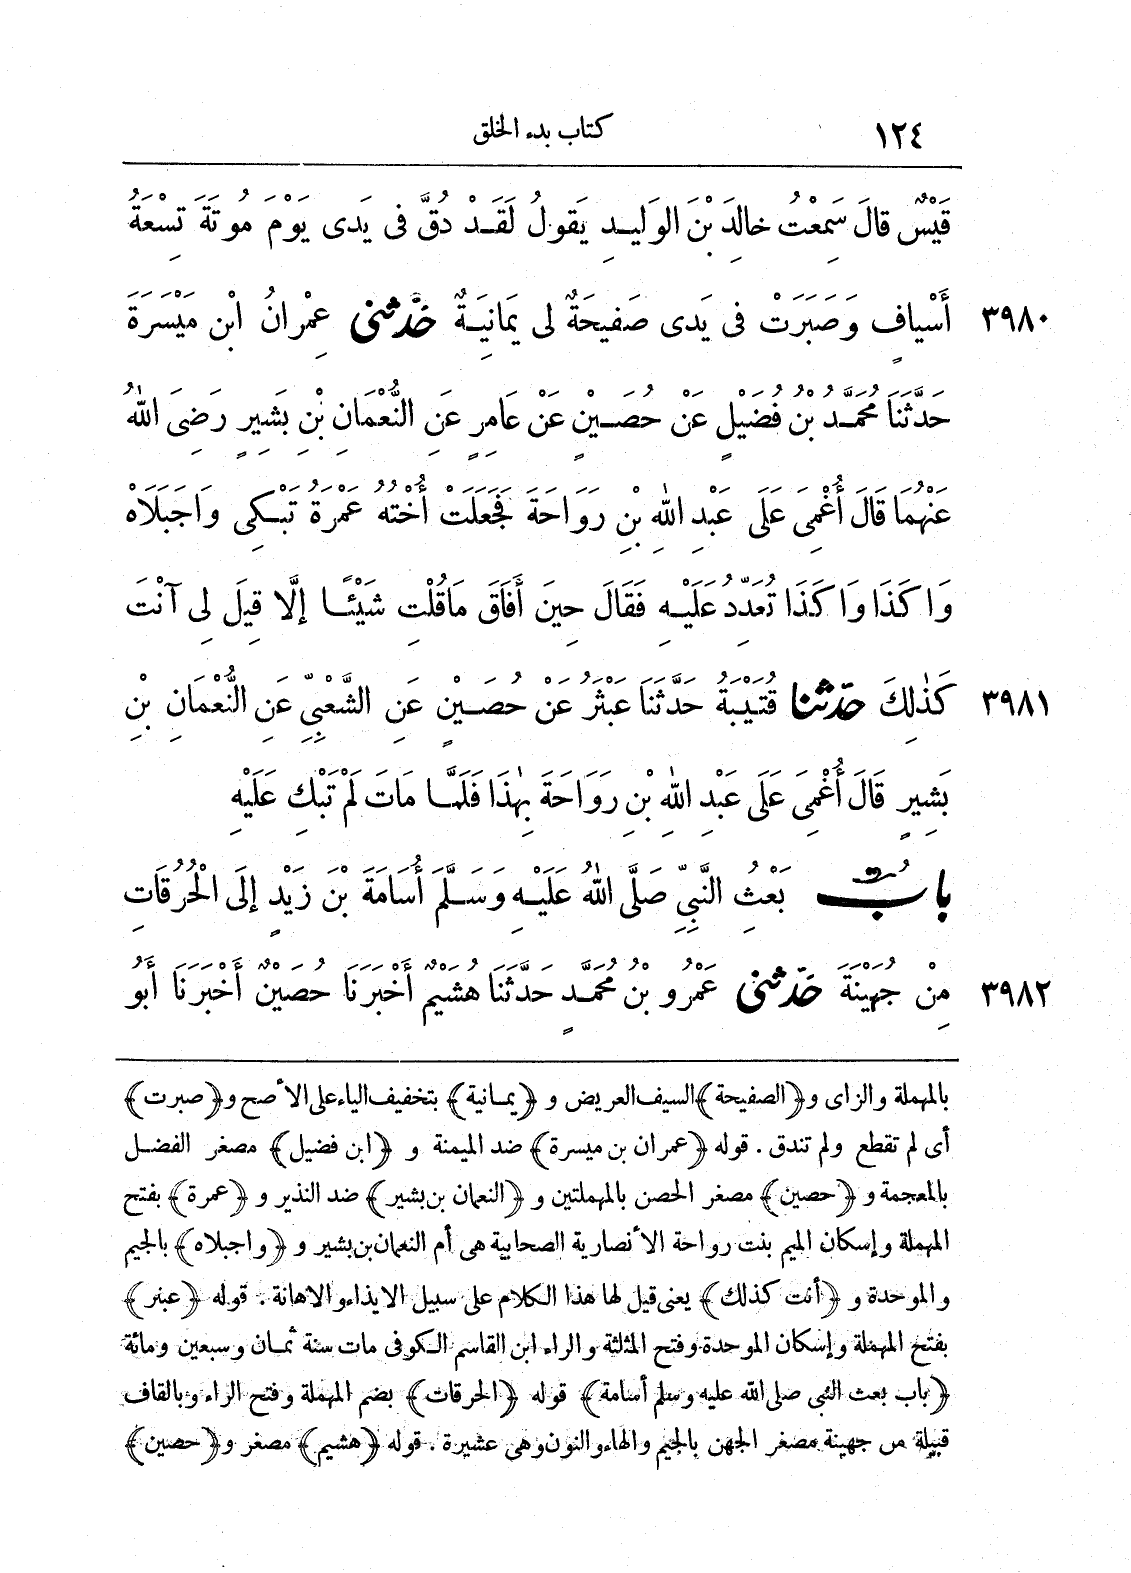 ١٢٤ كتاب بدء الخلق
قَيْسٌ قالَ سَمِعْتُ خالِدَ بْنَ الوَلِيدِ يَقولُ لَقَدْ دُقَّ فى يَدى يَوْمَ مُوتَةَ تِسْعَةُ
٣٩٨٠ أَسْيافٍ وَصَبَرَتْ فى يَدى صَفيحَةٌ لى يَمانِيَةٌ حَدَّثَنى عِمْرانُ ابْن مَيْسَرَةَ
حَدَّثَنَا مُحَمَّدُ بْنُ فُضَيْلٍ عَنْ حُصَيْنٍ عَنْ عَامِرٍ عَنِ النُّعْمَانِ بْنِ بَشِيرٍ رَضِىَ اللهُ
عَنْهُمَا قَالَ أُغْمِىَ عَلَى عَبْدِ اللهِ بْنِ رَوَاحَةَ فَجَعَلَتْ أُخْتُهُ عَمْرَةُ تَبْكِى وَاجَبَلَاهْ
وَا كَذَا وَا كَذَا تُعَدِّدُ عَلَيْهِ فَقَالَ حِينَ أَفَاقَ مَاقُلْتِ شَيْئًا إِلَّا قِيلَ لِى آنْتَ
٣٩٨١ كَذٰلِكَ حَدّثنا قُتَيْبَةُ حَدَّثَنَا عَبْثَرُ عَنْ حُصَيْنٍ عَنِ الشَّعْبِيِّ عَنِ النُّعْمَانِ بْنِ
بَشِيرٍ قَالَ أُغْمِىَ عَلَى عَبْدِ اللهِ بْنِ رَوَاحَةَ بِهٰذَا فَلَمَّا مَاتَ لَمْ تَبْكِ عَلَيْهِ
بابُ بَعْثِ النَّبِيِّ صَلَّى اللهُ عَلَيْهِ وَسَلَّمَ أُسَامَةَ بْنَ زَيْدٍ إِلَى الْحُرُقَاتِ
٣٩٨٢ مِنْ جُهَيْنَةَ حَدّثنى عَمْرُو بْنُ مُحَمَّدٍ حَدَّثَنَا هُشَيْمٌ أَخْبَرَنَا حُصَيْنٌ أَخْبَرَنَا أَبُو
بالمهملة والزاى و﴿الصفيحة﴾ السيف العريض و ﴿يمانية﴾ بتخفيف الياء على الأصح و﴿صبرت﴾
أى لم تقطع ولم تندق . قوله ﴿عمران بن ميسرة﴾ ضد الميمنة و ﴿ابن فضيل﴾ مصغر الفضل
بالمعجمة و ﴿حصين﴾ مصغر الحصن بالمهملتين و ﴿النعمان بن بشير﴾ ضد النذير و ﴿عمرة﴾ بفتح
المهملة وإسكان الميم بنت رواحة الأنصارية الصحابية هى أم النعمان بن بشير و ﴿واجبلاه﴾ بالجيم
والموحدة و ﴿أنت كذلك﴾ يعنى قيل لها هذا الكلام على سبيل الايذاء والاهانة . قوله ﴿عبثر﴾
بفتح المهملة وإسكان الموحدة وفتح المثلثة والراء ابن القاسم الكوفى مات سنة ثمان وسبعين ومائة
﴿باب بعث النبى صلى الله عليه وسلم أسامة﴾ قوله ﴿الحرقات﴾ بضم المهملة وفتح الراء وبالقاف
قبيلة من جهينة مصغر الجهن بالجيم والهاء والنون وهى عشيرة . قوله ﴿هشيم﴾ مصغر و﴿حصين﴾